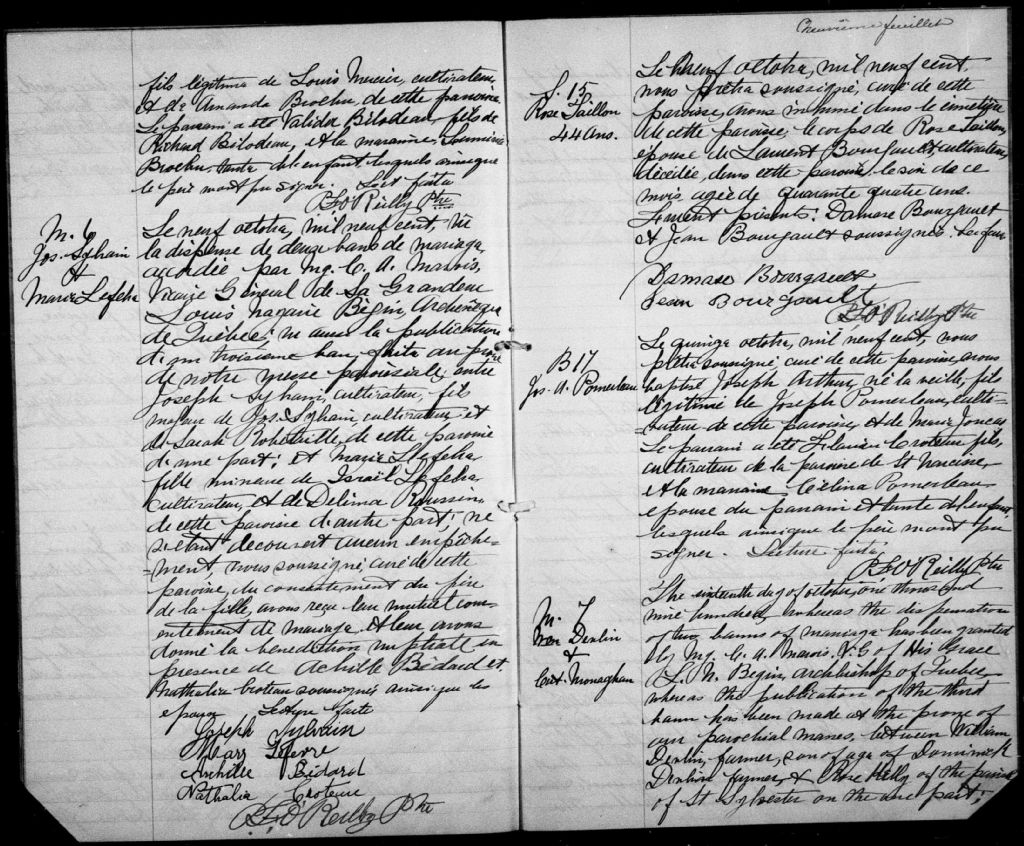 fils légitime de Louis Mercier, cultivateur,
et de Amanda Brochu, de cette paroisse.
Le parrain a été Valida Bilodeau, fils de
Richard Bilodeau, et la marraine,
Brochu, tante de l'enfant lesquels ainsi que
le père n'ont pu signer. Lect. faite
P.F. O'Reilly Ptre
M. 6
Jos. Sylvain
et
Marie Lefebre
Le neuf octobre, mil neuf cent, vu
la dispense de deux bans de mariage
accordée par Mg. C. A. Marois,
Vicaire Général de Sa Grandeur
Louis Nazaire Bégin, Archevêque
de Québec; vu aussi la publication
d'un troisième ban, faite au prône
de notre messe paroissiale, entre
Joseph Sylvain, cultivateur, fils
majeur de Jos. Sylvain, cultivateur et
de Sarah Robitaille, de cette paroisse
d'une part; et Marie Lefebre
fille mineure de Israël Lefebre,
cultivateur, et de Delima Roussin,
de cette paroisse d'autre part; ne
s'étant découvert aucun empêche-
-ment, nous soussigné, curé de cette
paroisse, du consentement du père
de la fille, avons reçu leur mutuel con-
entement de mariage et leur avons
donné la bénédiction nuptiale en
présence de Achille Bédard et
Nathalia Croteau soussignés ainsi que les
époux. Lecture faite
Joseph Sylvain
Mary Lefevre
Achille Bédard
Nathalia Croteau
P.F. O'Reilly Ptre
Neuvième feuillet
S. 15
Rose Taillon
44 ans.
Le neuf octobre, mil neuf cent,
nous prêtre soussigné, curé de cette
paroisse, avons inhumé dans le cimetière
de cette paroisse, le corps de Rose Taillon,
épouse de Laurent Bourgault, cultivateur,
décédée, dans cette paroisse, le six de ce
mois agée de quarante quatre ans.
Furent présents: Damase Bourgault
et Jean Bourgault soussignés.
Damase Bourgault
Jean Bourgault
P.F. O'Reilly Ptre
B 17
Jos. A. Pomerleau
Le quinze octobre, mil neuf cent, nous
prêtre soussigné, curé de cette paroisse, avons
baptisé Joseph Arthur, né la veille, fils
légitime de Joseph Pomerleau, culti-
vateur de cette paroisse, et de Marie Joncas
Le parrain a été Croteau fils,
cultivateur de la paroisse de St Narcisse,
et la marraine Célina Pomerleau
épouse du parrain et tante de l'enfant,
lesquels ainsi que le père n'ont pu
signer. Lecture faite,
P.F. O'Reilly Ptre
M. 7
Wm Devlin
&
Cat. Monaghan
The sixteenth day of october, one thousand
nine hundred, whereas the dispensation
of two banns of mariage has been granted
by Mg. C. A. Marois, V. G of His Grace
L. N. Begin, archbishop of Quebec,
whereas the publication of the third
bann has been made at the prone of
our parochial masses, between William
Devlin, farmer, son of age of Dominick
Devlin farmer, & Rose Kelly of the parish
of St Sylvester on the one part;